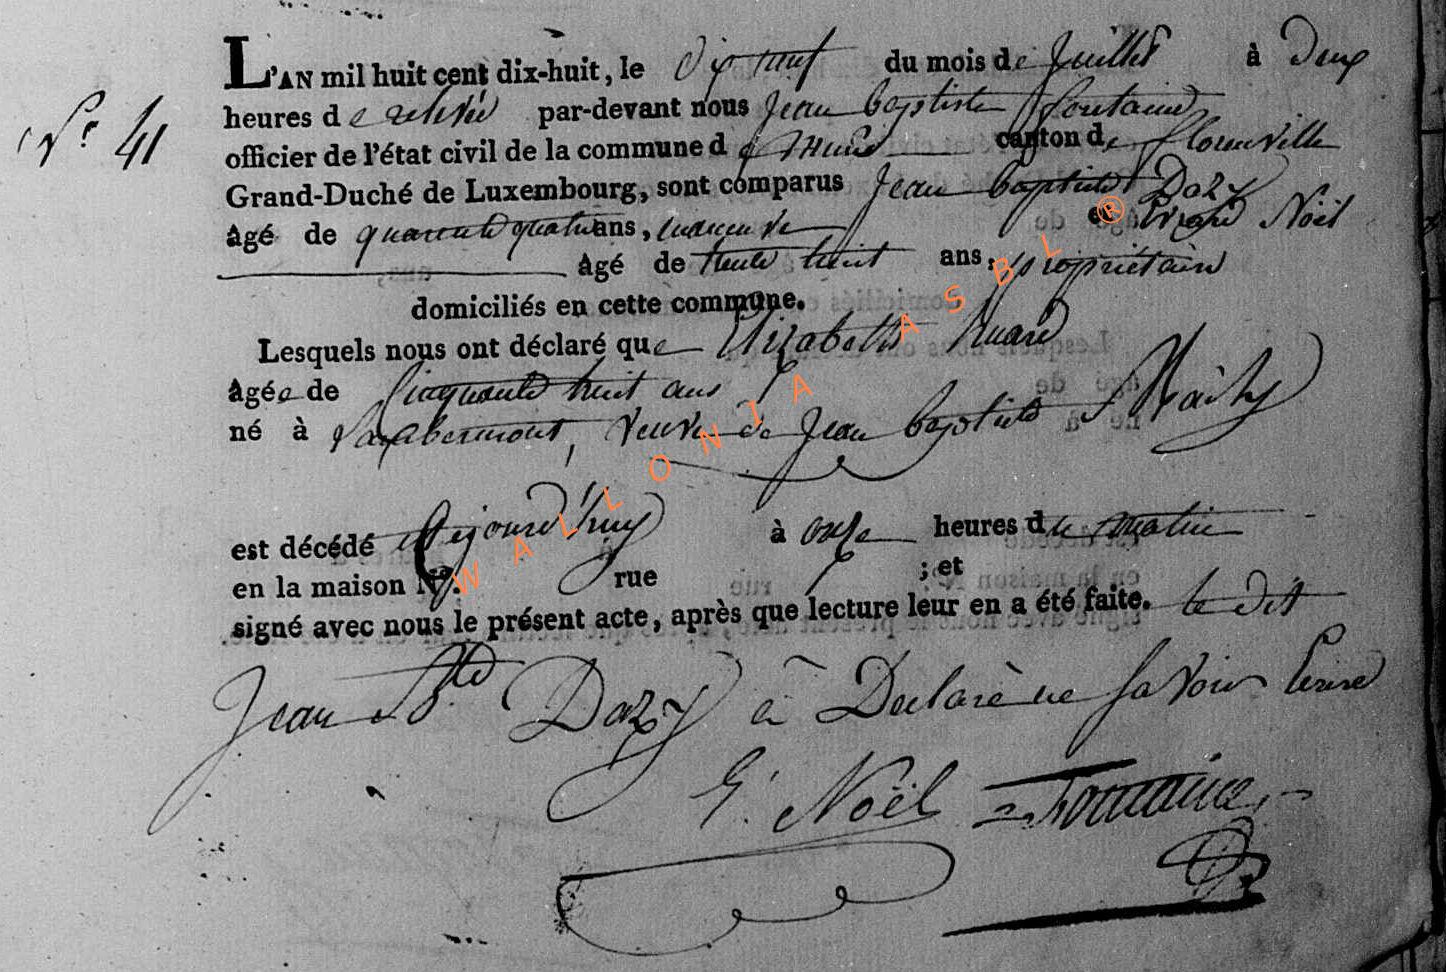 N.° 41
L'AN mil huit cent dix-huit, le dix neuf du mois de Juillet à Deux
heures de relevé par-devant nous Jean baptiste fontaine
officier de l'état civil de la commune de muno canton de florenville
Grand-Duché de Luxembourg, sont comparus Jean baptiste Dazy
âgé de quarante quatre ans, manœuvre et Noël
âgé de trente huit ans, propriétaire
domiciliés en cette commune.
Lesquels nous ont déclaré que Elizabeth huard
âgée de Cinquante huit ans
né à Lambermont, veuve de Jean baptiste Maily
est décédé aujourd'huy à onze heures du matin
en la maison N.° rue ; et
signé avec nous le présent acte, après que lecture leur en a été faite. le dit
Jean Bte Dazy à Declaré ne savoir Ecrire
E. Noël Fontaine
WALLONIA ASBL ®